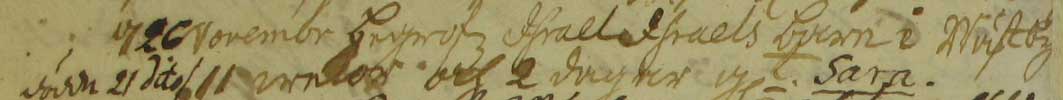 d 20 Novembr begrofz Israel Israels barn i Wästby
dödh 21 dito 11 wekor och 2 dagar gl. Sara.